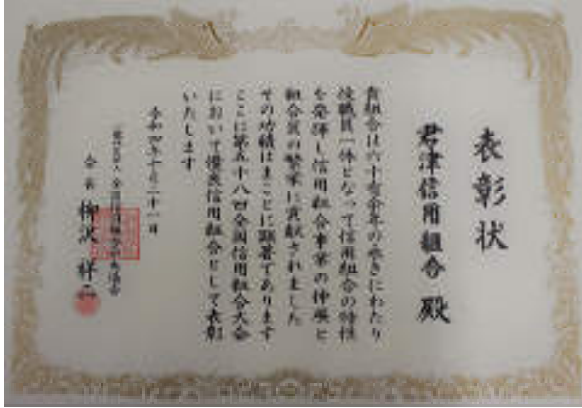 表彰状
君津信用組合 殿
貴組合は六十有余年の永きにわたり
役職員一体となって信用組合の特性
を発揮し信用組合事業の伸展と
組合員の繁栄に貢献されました
その功績はまことに顕著であります
ここに第五十八回全国信用組合大会
において優良信用組合として表彰
いたします
令和四年十月二十一日
会長 柳沢 祥二